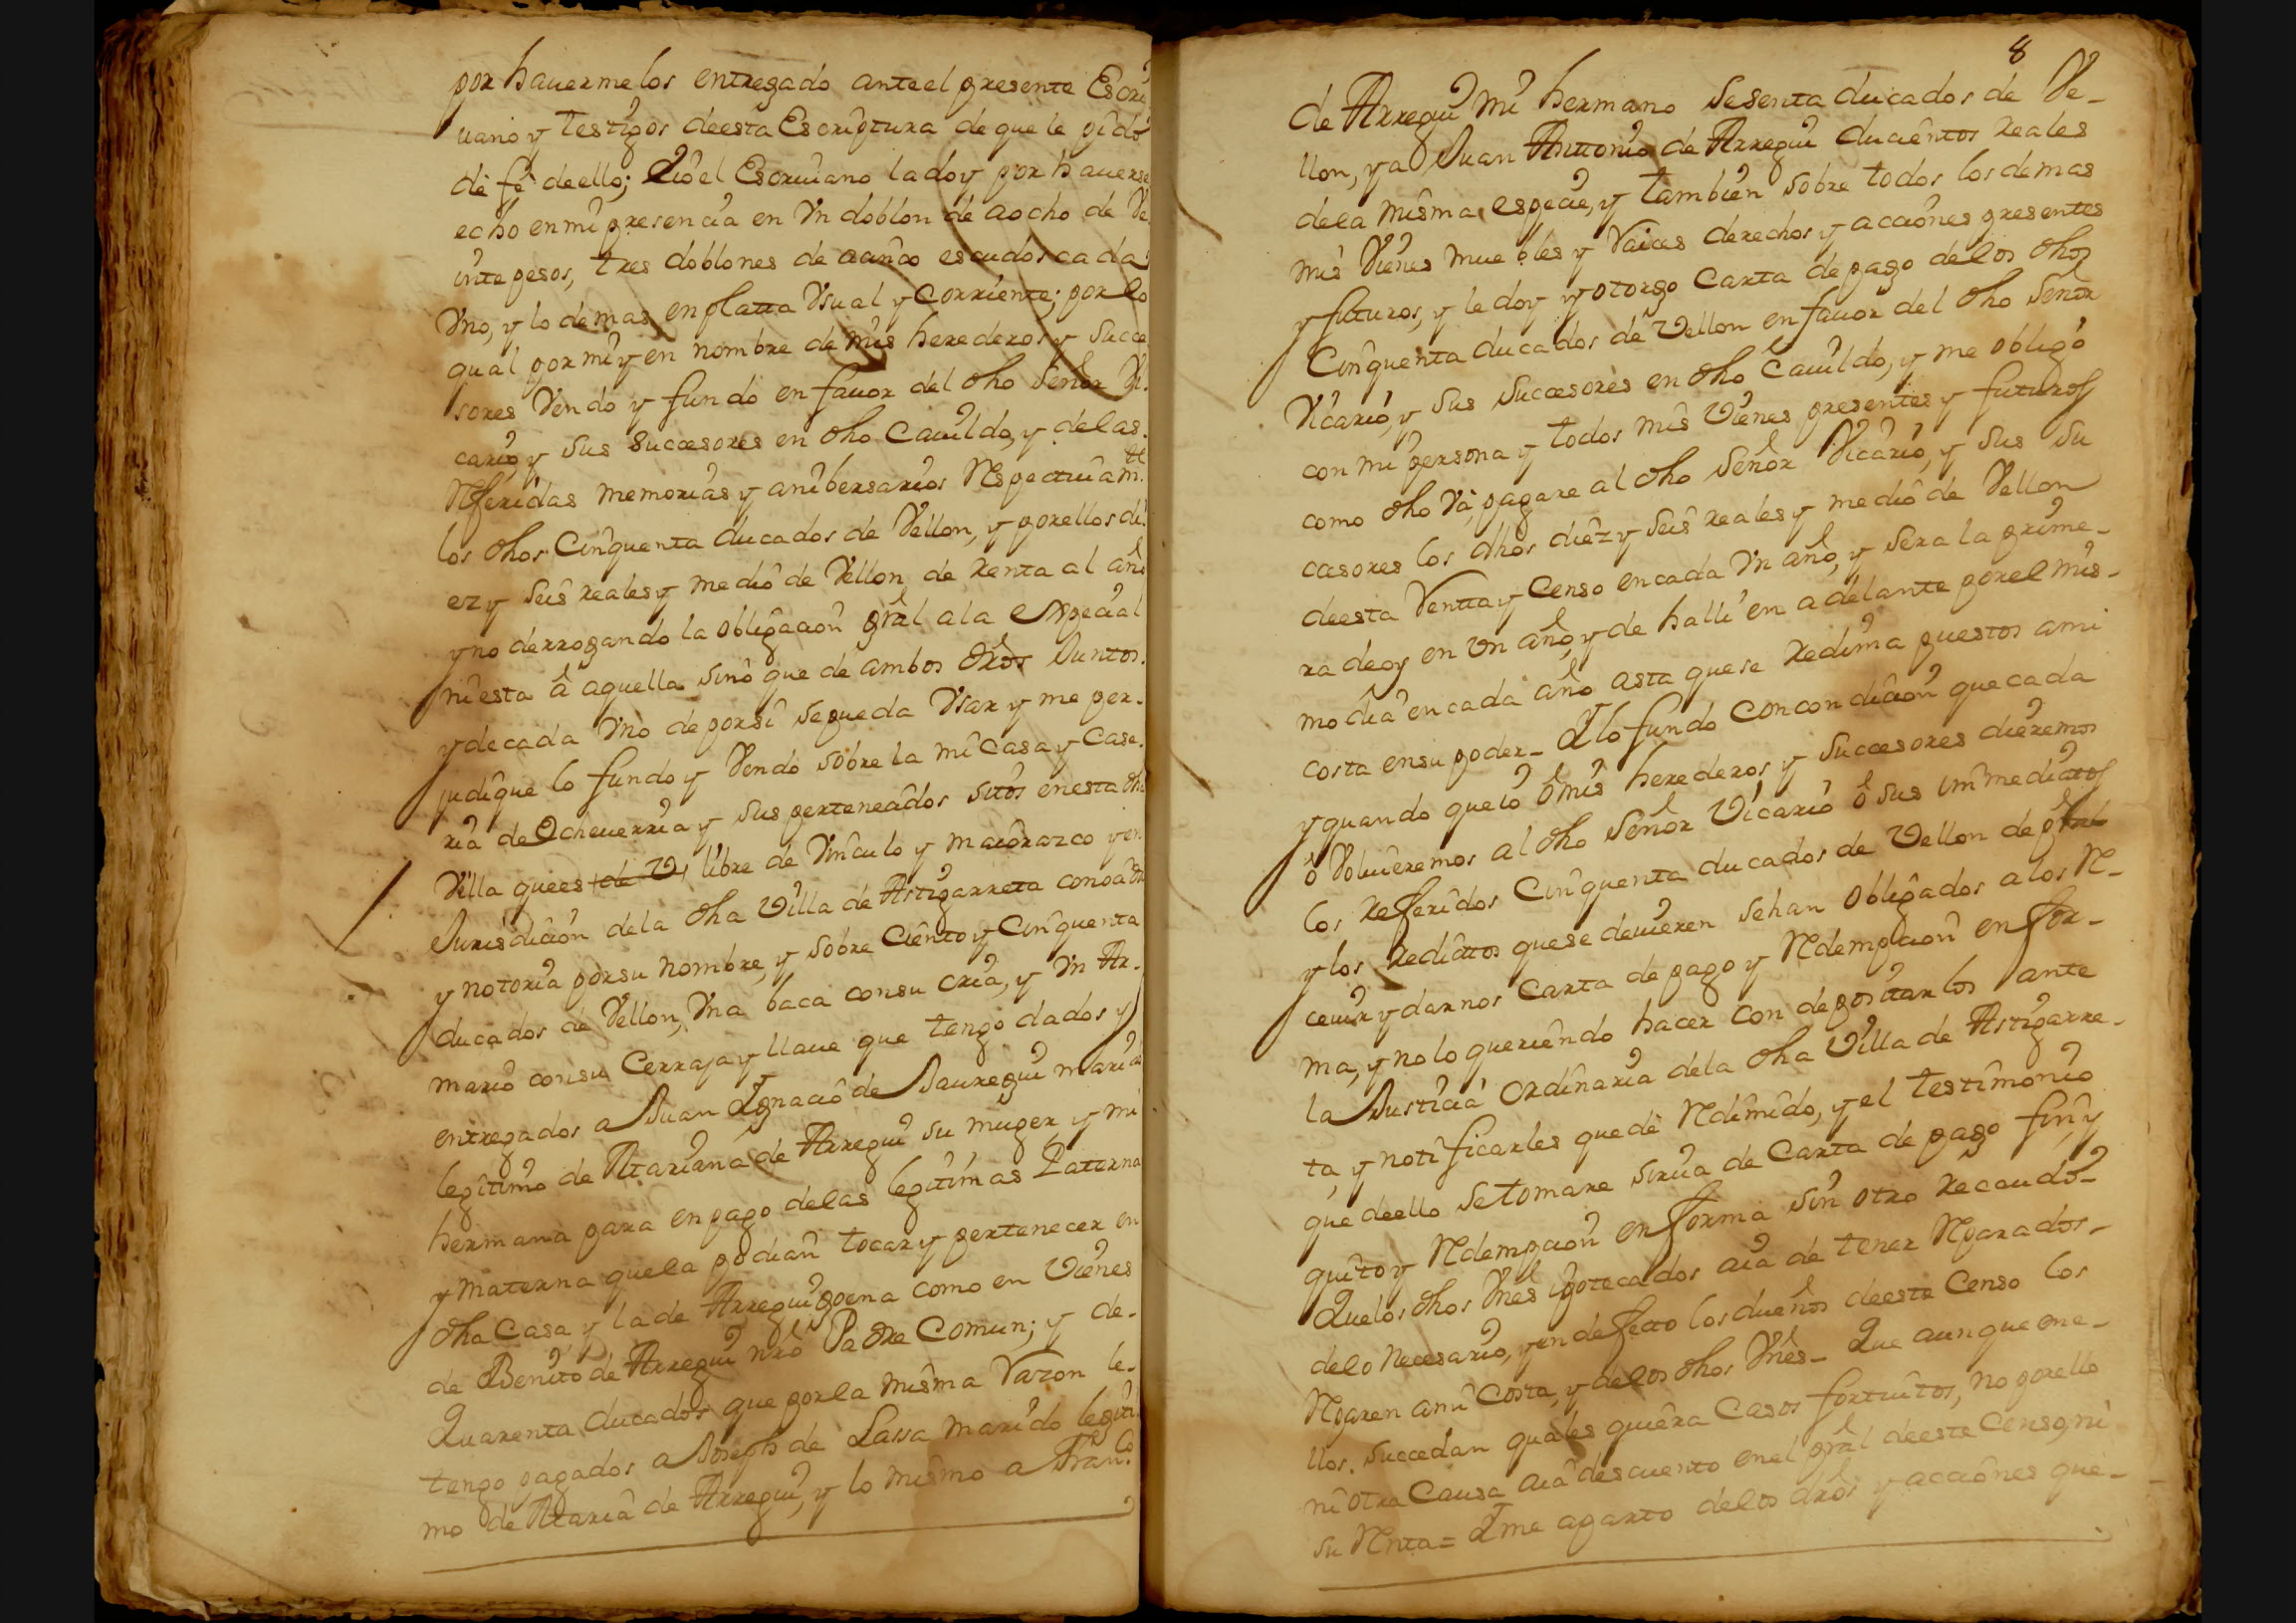 por hauermelos entregado ante el presente Escri
uano y testigos de esta Escriptura de que le pido
dè feè de ello; Yó el Escriuano la doy por hauerse
echo en mi presencia en Vn doblon de a ocho de Ve
inte pesos, tres doblones de a cinco escudos cada
Vno, y lo demas en platta Vsual y Corriente; por lo
qual por mi y en nombre de mis herederos y Succe
sores Vendo y fundo en fauor del dho Señor Vi.
cario, y sus succesores en dho Cauildo, y de las.
Referidas memorias y anibersarios Respectiuamte
los dhos Cinquenta ducados de Vellon, y por ellos di
ez y seis reales y medio de Vellon de renta al año
y no derrogando la obligacion gral a la especial
ni esta â aquella sinò que de ambos dros Juntos.
y de cada Vno de por si se pueda Vsar y me per.
judique lo fundo y Vendo sobre la mi Casa y Case.
ria de Echeuerria y sus perteneciâdos sitos en esta dha
Villa que es de V, libre de Vinculo y maiorazco y en
Jurisdicion de la dha Villa de Astigarreta conocida
y notoria por su nombre, y sobre Ciento y Cinquenta
ducados de Vellon, Vna baca con su cria, y Vn Ar.
mario con su Cerraja y llaue que tengo dados y
entregados a Juan Ygnacio de Jauregui marido
legitimo de Mariana de Arregui su muger y mi
hermana para en pago de las legitimas Paterna
y materna que la podian tocar y pertenecer en
dha Casa, y la de Arreguigoena como en Vienes
de Benito de Arregui nrô Padre Comun; y de.
Quarenta ducados que por la misma Razon le.
tengo pagados a Joseph de Lassa marido legiti.
mo de Maria de Arregui, y lo mismo a Franco
8
de Arregui mi hermano Sesenta ducados de Ve-
llon, y a Juan Antonio de Arregui ducientos reales
de la misma especie, y tambien sobre todos los demas
mis Vienes muebles y Raices derechos y acciones presentes
y futuros, y le doy y otorgo Carta de pago de los dhos
Cinquenta ducados de Vellon en fauor del dho Señor
Vicario, y sus Succesores en dho Cauildo, y me obligo
con mi persona y todos mis Vienes presentes y futuros
como dho Và, pagare al dho Señor Vicario, y sus Su
ccesores los dhos diez y seis reales y medio de Vellon
de esta Ventta y Censo en cada Vn año, y sera la prime-
ra de oy en Vn año, y de halli en adelante por el mis-
mo dia en cada año asta que se redima puestos a mi
costa en su poder- Y lo fundo con condicion que cada
y quando que iô ô mis herederos y Succesores dieremos
ò Voluieremos al dho Señor Vicario ô sus immediattos
los referidos Cinquenta ducados de Vellon de pral
y los redittos que se deuieren se han obligados a los Re-
ceuir y darnos Carta de pago y Redempcion en for-
ma, y no lo queriendo hacer con depositarlos ante
la Justicia ordinaria de la dha Villa de Astigarre-
ta, y notificarles quede Redimido, y el testimonio
que de ello se tomare sirua de Carta de pago fin y
quito y Redempcion en forma sin otro recaudo-
Que los dhos Vnes ipotecados aia de tener Reparados-
de lo necesario, y en defecto los dueños de este Censo los
Reparen a mi Costa, y de los dhos Vnès- Que aunque en e-
llos. succedan quales quiera Casos fortuitos, no por ello
ni otra Causa aia descuento en el pral de este Censo, ni
su Renta = Y me aparto de los dros y acciones que-